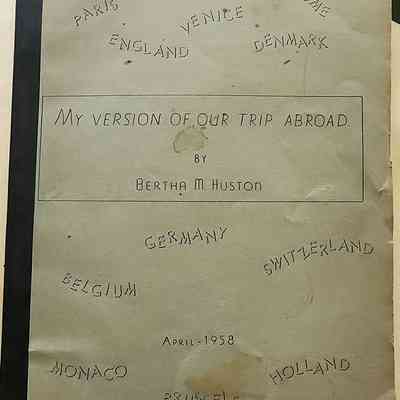 PARIS VENICE
ENGLAND DENMARK
MY VERSION OF OUR TRIP ABROAD.
BY
BERTHA M. HUSTON
GERMANY
SWITZERLAND
BELGIUM
APRIL - 1958
MONACO HOLLAND